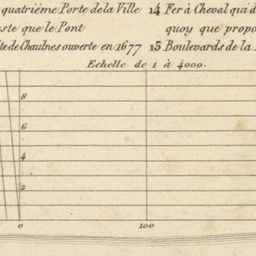 quatriéme Porte de la Ville
14 Fer à Cheval qui d
ste que le Pont
quoy que propo
te de Chaulnes ouverte en 1677
15 Boulevards de la
Echelle de 1 à 4000.
8
6
4
2
0
100